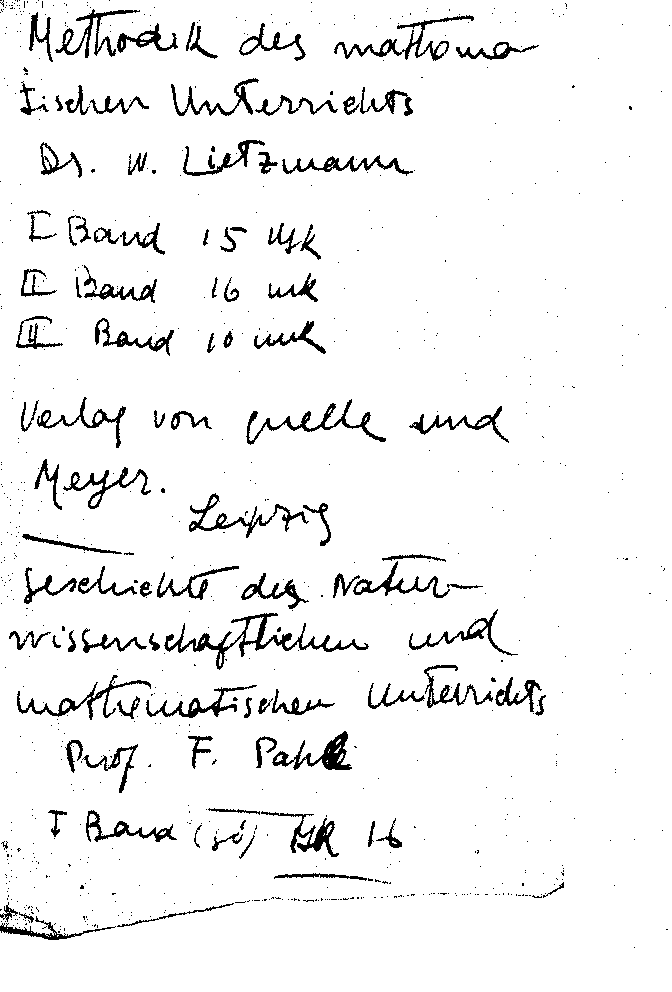 Methodik des mathema
tischen Unterrichts
Dr. W. Lietzmann
I Band 15 Mk
II Band 16 mk
III Band 10 mk
Verlag von quelle und
Meyer.
Leipzig
Geschichte des Natur-
wissenschaftlichen und
mathematischen Unterrichts
Prof. F. Pahl
I Band (só) Mk 16